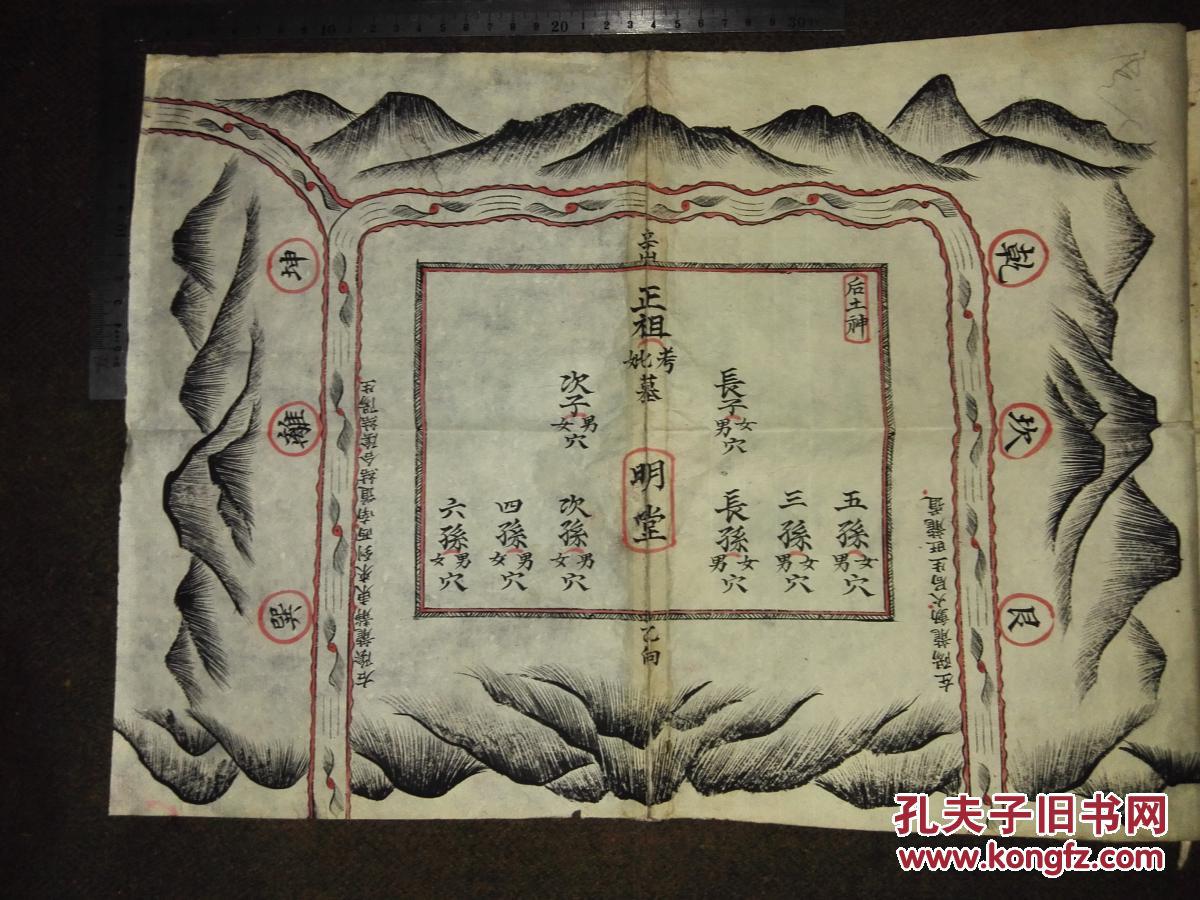 辛山
正祖
考妣墓
后土神
長子
男女穴
次子
男女穴
明堂
五孫
男女穴
三孫
男女穴
長孫
男女穴
次孫
男女穴
四孫
男女穴
六孫
男女穴
乙向
乾
坎
艮
坤
離
巽
左陽龍動大局生旺龍道
右陰龍靜東來到西南道結合陰結陽生
孔夫子旧书网
www.kongfz.com